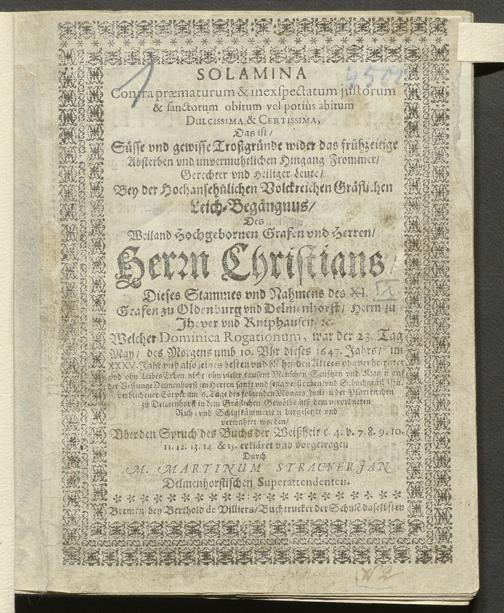 SOLAMINA
Contra præmaturum & inexspectatum justorum
& sanctorum obitum vel potiùs abitum
DULCISSIMA, & CERTISSIMA,
Das ist/
Süsse vnd gewisse Trostgründe wider das frühzeitige
Absterben vnd unvermuhtlichen Hingang Frommer/
Gerechter vnd Heiliger Leute/
Bey der Hochansehnlichen Volckreichen Gräflichen
Leich-Begängnus/
Des
Weiland Hochgebornen Grafen vnd Herren/
Herrn Christians/
Dieses Stammes vnd Nahmens des XI.
Grafen zu Oldenburg vnd Delmenhorst/ Herrn zu
Jhever vnd Kniphausen/ &c.
Welcher Dominica Rogationum, war der 23. Tag
May/ des Morgens umb 10. Vhr dieses 1647. Jahrs/ im
XXXV. Jahr vnd also seines besten und blühenden Alters
der Vestunge Delmenhorst im Herren sanft vnd selig
verblichener Cörper am 6. Tage des folgenden Monats Julii in der Pfarrkirchen
zu Delmenhorst in dem Gräflichen Gewölbe als dem verordneten
Ruh- und Schlafkämmerlein beygesetzt und
verwahret worden/
Vber den Spruch des Buchs der Weißheit c. 4. v. 7. 8. 9. 10.
11. 12. 13. 14. & 15. erkläret vnd vorgetragen
Durch
M. MARTINUM STRACKERJAN
Delmenhorstischen Superattendenten.
Bremen/ bey Berthold de Villiers/ Buchtrucker der Schule daselbsten